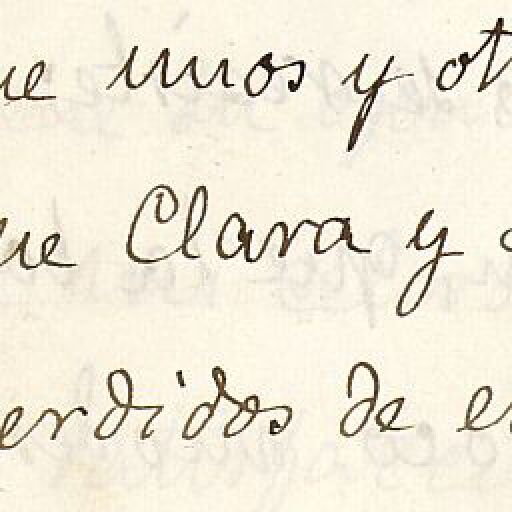 ue unos y ot
ue Clara y
erdidos de es